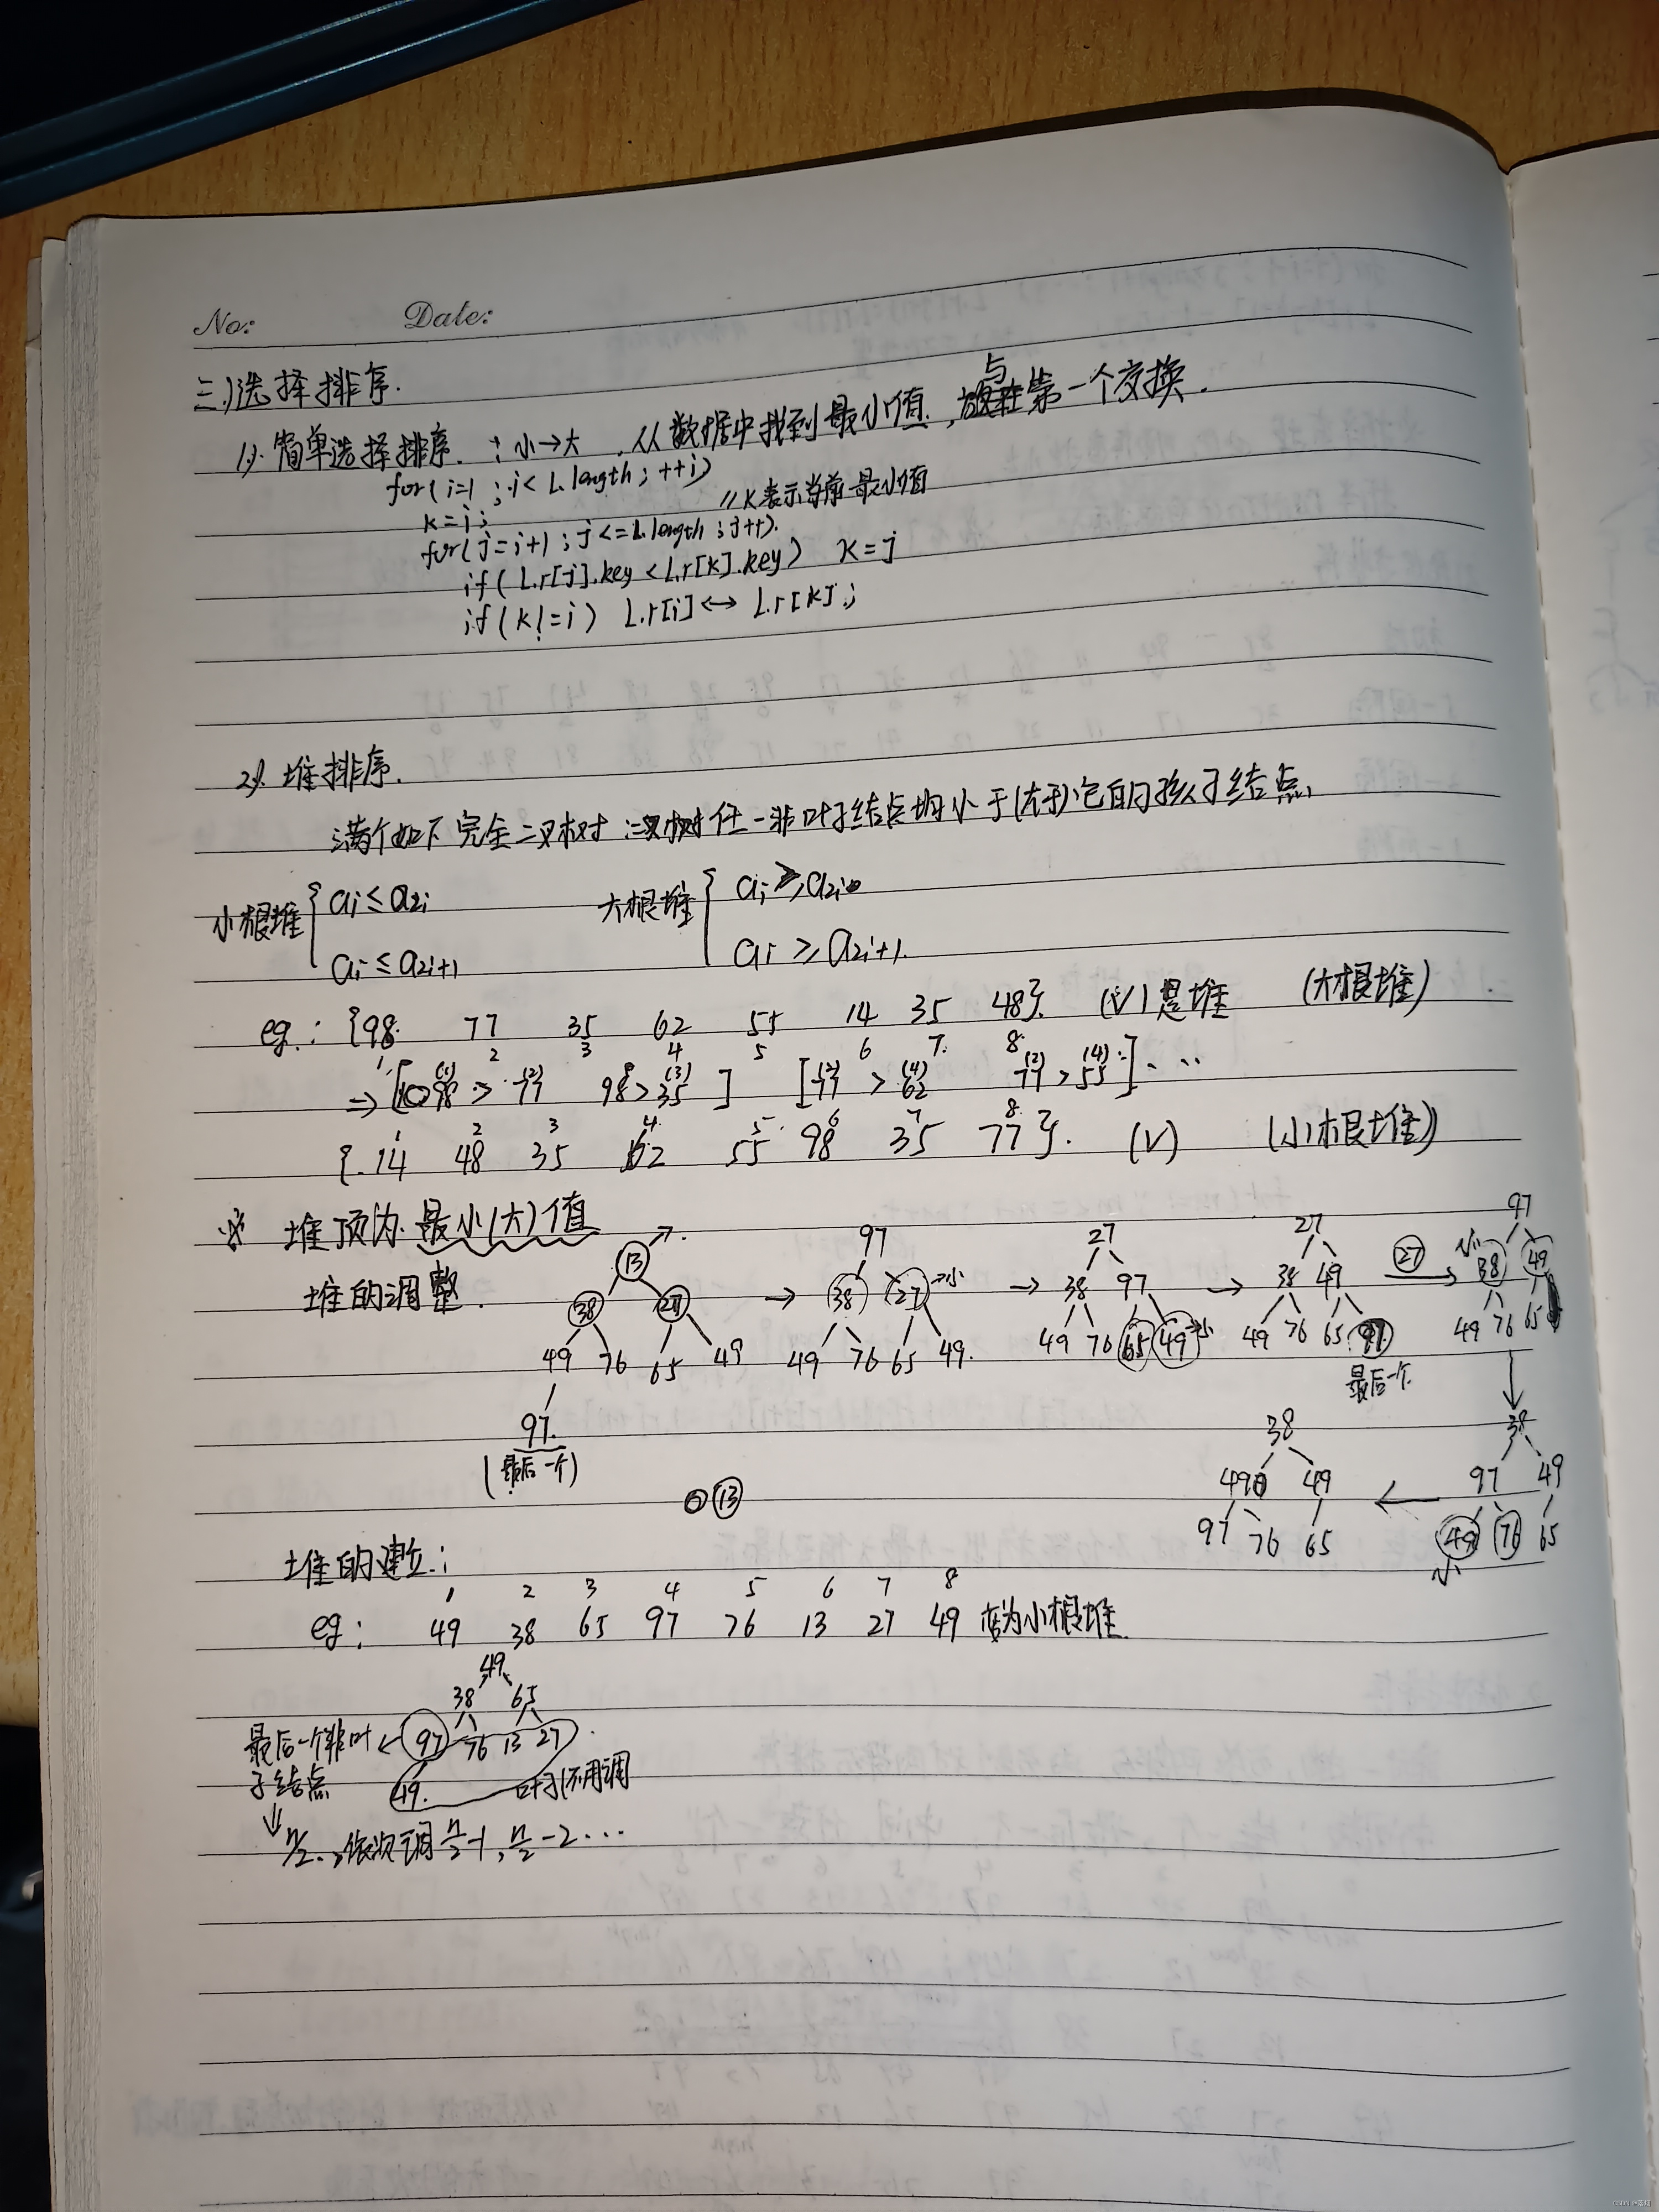 No: Date:
三、选择排序.
1). 简单选择排序. : 小→大 , 从数据中找到最小值, 与第一个交换.
for(i=1 ; i< L.length ; ++i)
k=i; //k表示当前最小值
for(j=i+1 ; j<=L.length ; j++).
if( L.r[j].key < L.r[k].key) k=j
if(k!=i) L.r[i]↔ L.r[k];
2). 堆排序.
满个如下完全二叉树: 任一非叶子结点均小于(大于)它的孩子结点.
小根堆 { ai ≤ a2i 大根堆 { ai ≥ a2i
ai ≤ a2i+1 ai ≥ a2i+1.
eg.: {98 77 35 62 55 14 35 48}. (√) 是堆 (大根堆)
1 2 3 4 5 6 7 8
⇒ [98(1) > 77(2) 98 > 35(3) ] [77(2) > 62(4) 77(2) > 55(4)] ...
1 2 3 4 5 6 7 8
{ 14 48 35 62 55 98 35 77 }. (√) (小根堆)
※ 堆顶为最小(大)值
堆的调整.
13 →
38 27
49 76 65 49
97
(最后一个)
→ 97
38 27 →小
49 76 65 49.
→ 27
38 97
49 76 65 49 →小
→ 27
38 49
49 76 65 97
最后一个.
27 →
97
小 38 49
49 76 65
↓
38
97 49
49 76 65
小
←
38
49 49
97 76 65
13
堆的建立:
1 2 3 4 5 6 7 8
eg: 49 38 65 97 76 13 27 49 变为小根堆
49
38 65
最后一个非叶 ← 97 76 13 27
子结点 49. 叶子(不用调
↓ n/2.,依次调 n/2 -1, n/2 -2 ...
CSDN @